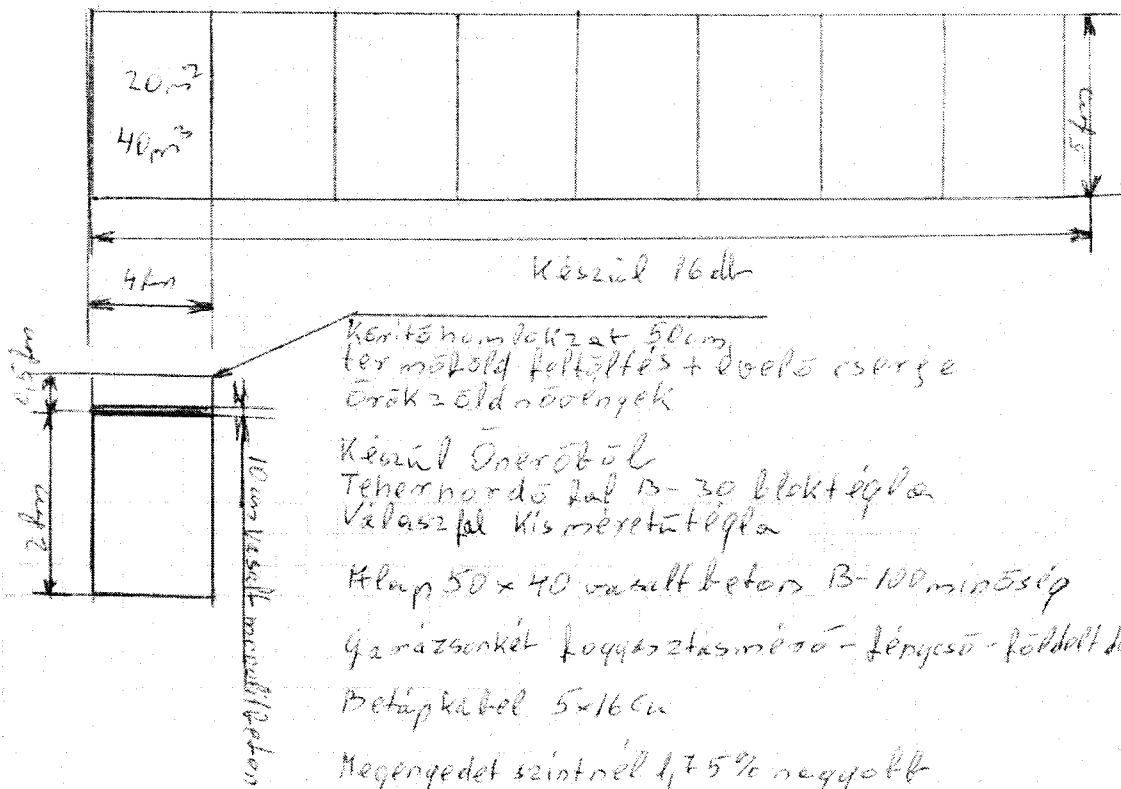 20m²
40m³
5fm
Készül 16 db
4fm
0,5fm
2fm
10cm vasalt monolit beton
Kerítőhomlokzat 50cm
termőföld feltöltés + cserje
Örökzöld növények
Készül Önerőből
Teherhordó fal B-30 bloktégla
Válaszfal Kisméretűtégla
Alap 50 x 40 vasalt beton B-100 minőség
Garázsonkét fogyasztásmérő - fénycső - földelt
Betápkábel 5x16 Cu
Megengedet szintnél 1,75% nagyobb